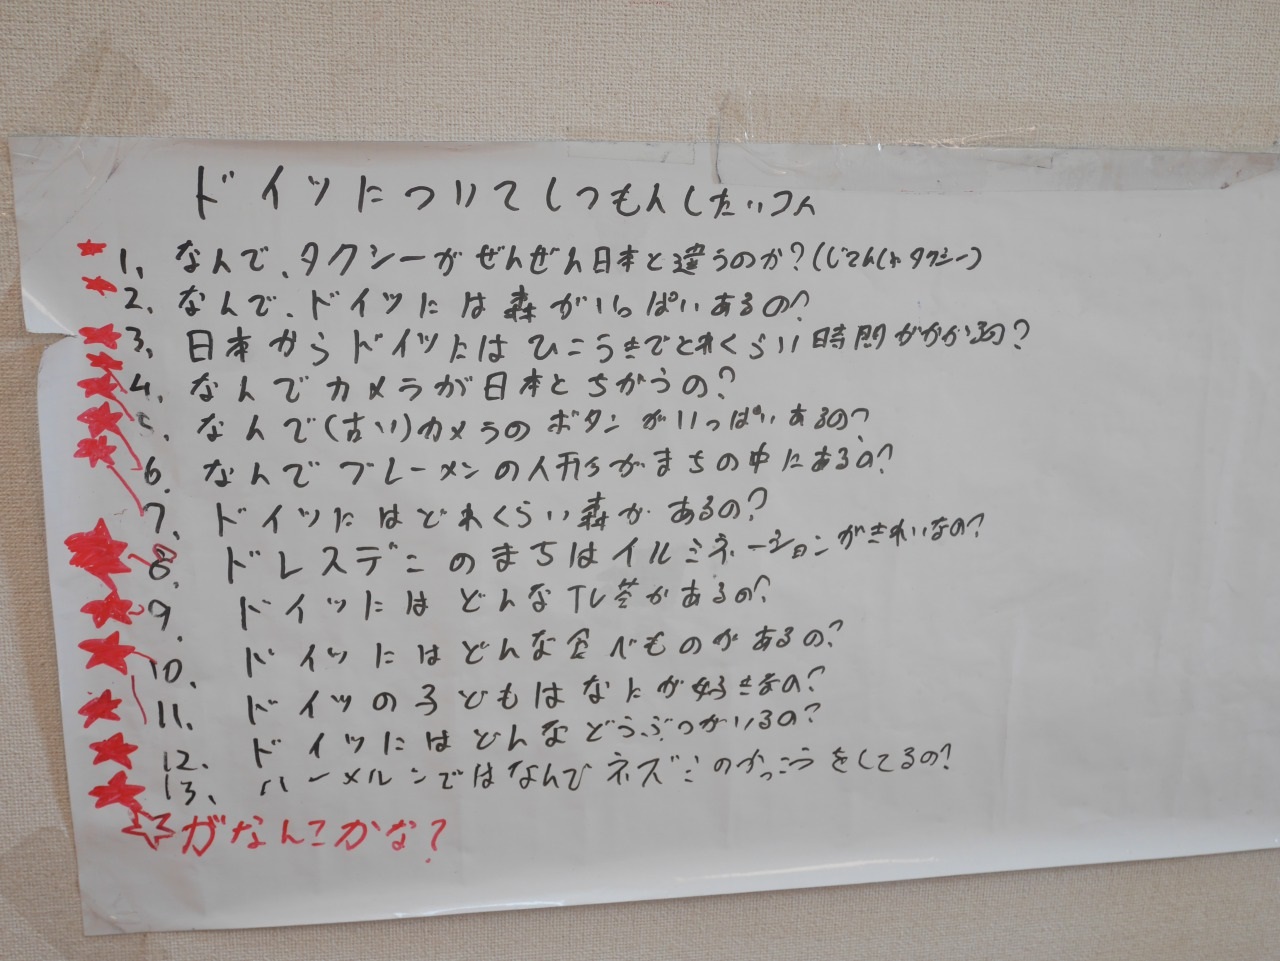 ドイツについてしつもんしたいコん
1. なんで、タクシーがぜんぜん日本と違うのか?(じてんしゃタクシー)
2. なんで、ドイツには森がいっぱいあるの?
3. 日本からドイツにはひこうきでどれくらい時間がかかるの?
4. なんでカメラが日本とちがうの?
5. なんで(古い)カメラのボタンがいっぱいあるの?
6. なんでブレーメンの人形がまちの中にあるの?
7. ドイツにはどれくらい森があるの?
8. ドレスデンのまちはイルミネーションがきれいなの?
9. ドイツにはどんな があるの?
10. ドイツにはどんな食べものがあるの?
11. ドイツの子どもはなにが好きなの?
12. ドイツにはどんなどうぶつがいるの?
13. ハーメルンではなんでネズミのかっこうをしてるの?
☆がなんこかな?